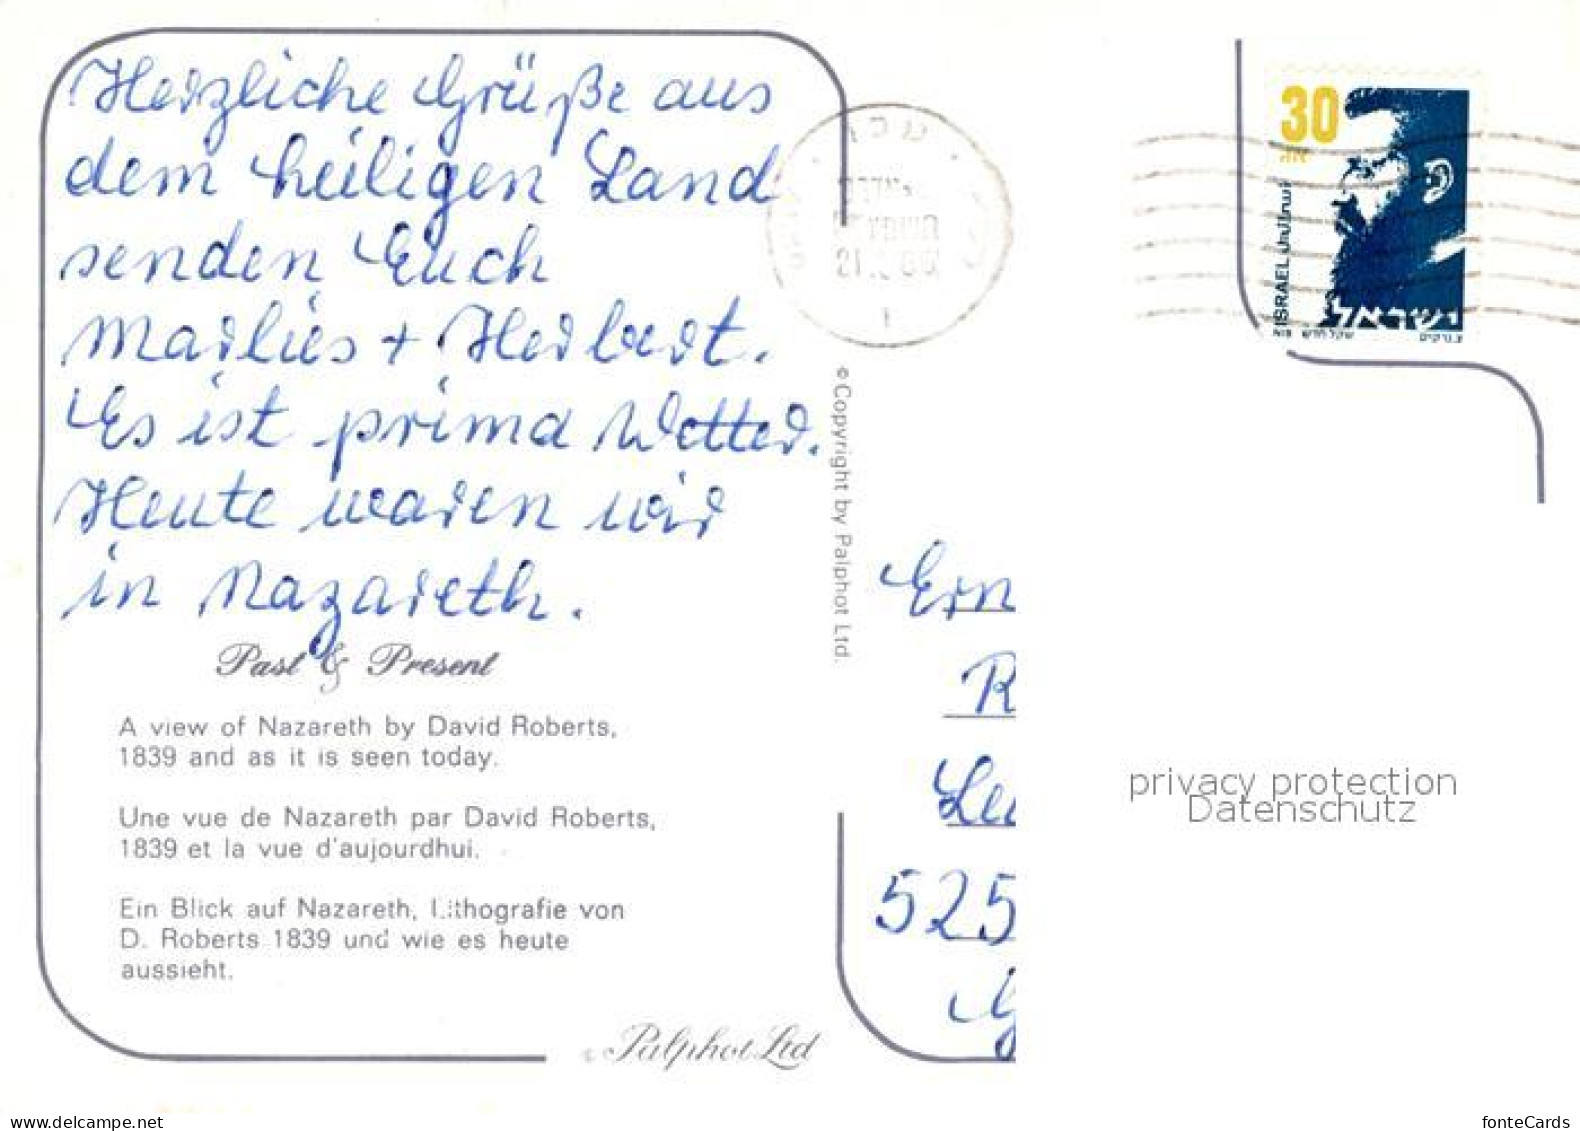 Herzliche Grüße aus
dem heiligen Land
senden Euch
Marlies + Herbert.
Es ist prima Wetter.
Heute waren wir
in Nazareth.
Past & Present
A view of Nazareth by David Roberts,
1839 and as it is seen today.
Une vue de Nazareth par David Roberts,
1839 et la vue d'aujourdhui.
Ein Blick auf Nazareth, Lithografie von
D. Roberts 1839 und wie es heute
aussieht.
Palphot Ltd
© Copyright by Palphot Ltd.
30
ISRAEL
ישראל
שקל חדש
525
privacy protection
Datenschutz
www.delcampe.net
fonteCards